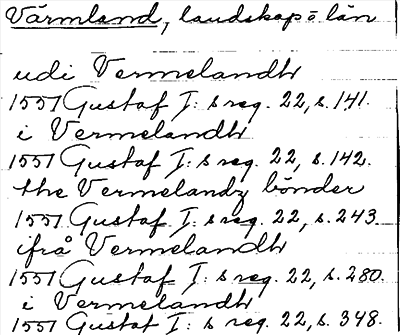 Värmland, landskap o län
udi Vermelandh
1551 Gustaf I: s reg. 22, s. 141.
i Vermelandh
1551 Gustaf I: s reg. 22, s. 142.
the Vermelandz bönder
1551 Gustaf I: s reg. 22, s. 243
ifrå Vermelandh
1551 Gustaf I: s reg. 22, s. 280.
i Vermelandh
1551 Gustaf I: s reg. 22, s. 348.